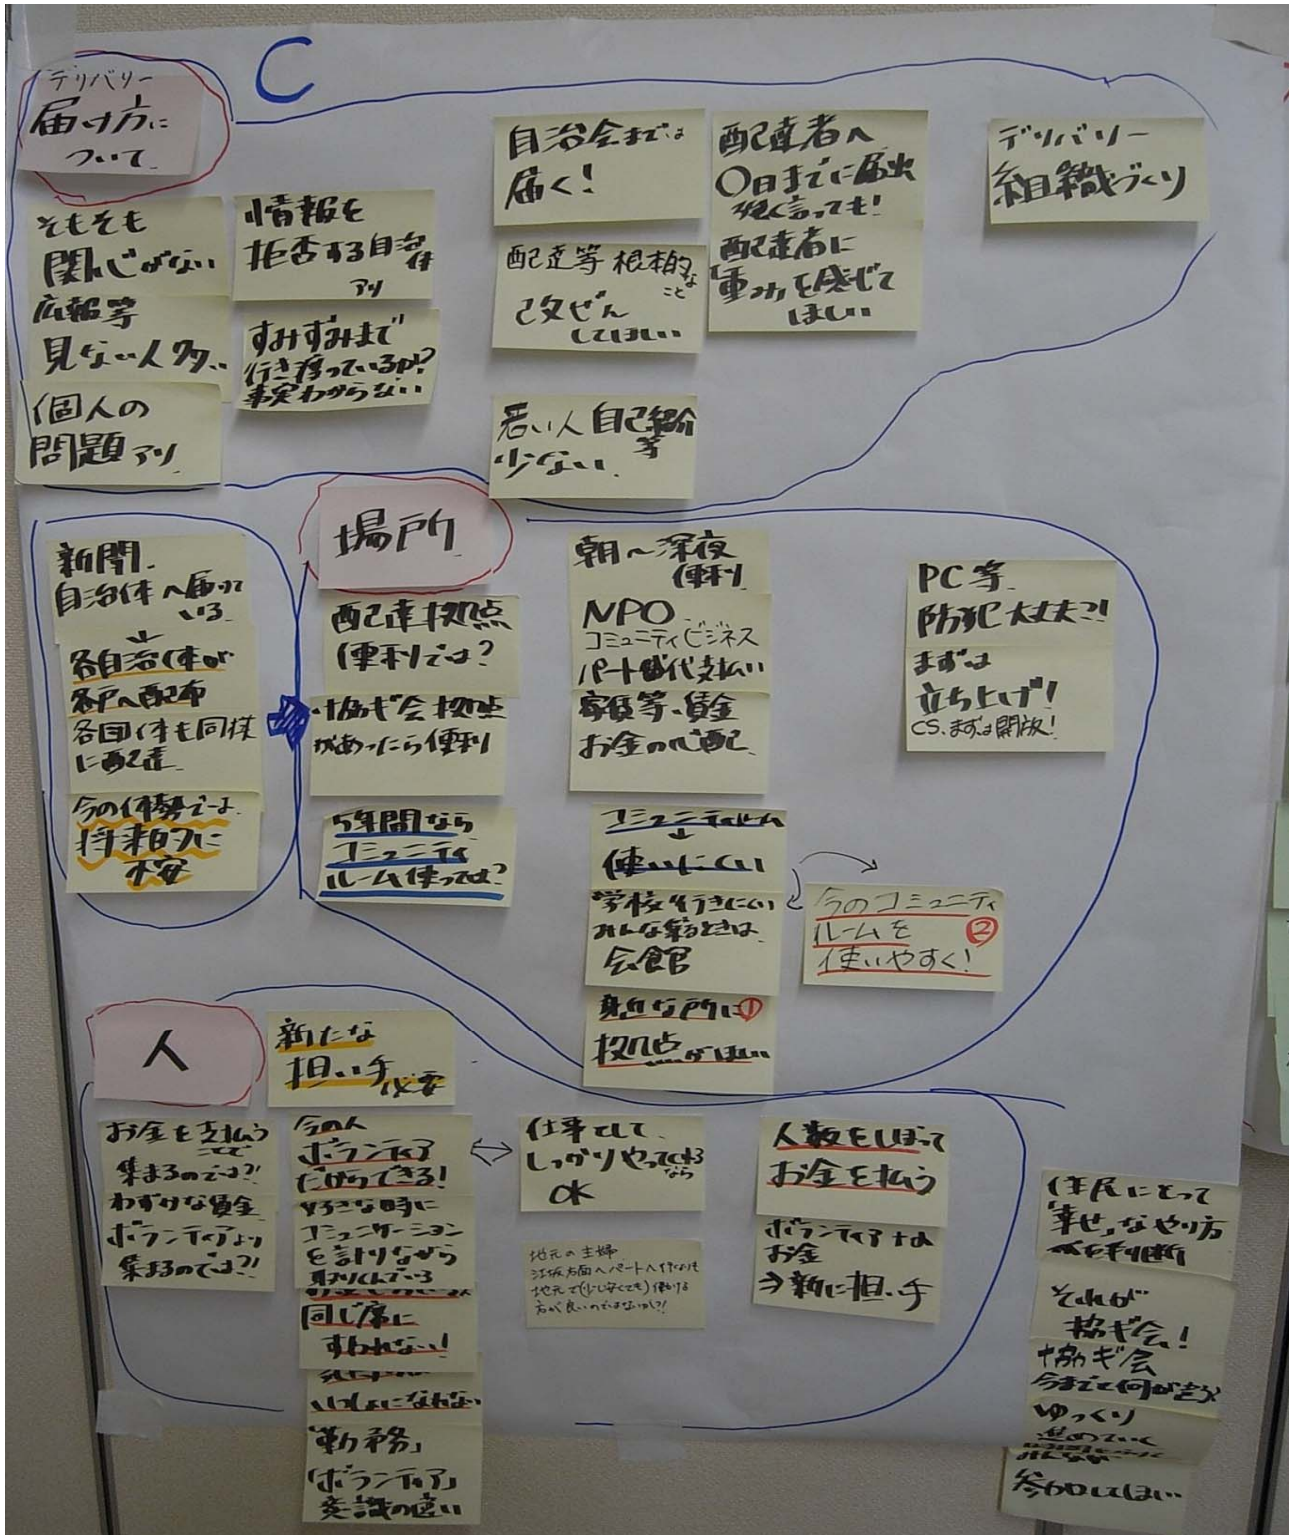 C
デリバリー
届け方に
ついて
そもそも
関心がない
広報等
見ない人多い
個人の
問題アリ
情報を
拒否する自治体
アリ
すみずみまで
行き渡っているか!?
事実わからない
自治会までは
届く!
配達等根本的なこと
改ぜん
してほしい
若い人自己紹介等
少ない
配達者へ
〇日までに届出
強く言っても!
配達者に
「重み」を感じて
ほしい
デリバリー
組織づくり
新聞
自治体へ届いて
いる
↓
各自治体が
各戸へ配布
各団体も同様
に配達
今の体勢では
将来的に
不安
場所
配達拠点
便利では?
・協ギ会拠点
があったら便利
5年間なら
コミュニティ
ルーム使っては?
朝~深夜
便利
NPO
コミュニティビジネス
パート時代支払い
家賃等・賃金
お金の心配
コミュニティルーム
↓
使いにくい
学校行きにくい
みんな集るときは
会館
身近な所に①
拠点がほしい
PC等
防犯大丈夫?!
まずは
立ち上げ!
CS.まずは開放!
今のコミュニティ
ルームを ②
使いやすく!
人
新たな
担い手必要
お金を支払う
ことで
集まるのでは?!
わずかな賃金
ボランティアより
集まるのでは?!
今の人
ボランティア
だからできる!
好きな時に
コミュニケーション
を計りながら
取りくんでいる
同じ席に
すわれない!
いっしょになれない
「勤務」
「ボランティア」
意識の違い
⇔
仕事として
しっかりやってくれる
なら
OK
地元の主婦
江坂方面へパートへ行くよりも
地元で(少し安くても)働ける
方が良いのではないか?!
人数をしぼって
お金を払う
ボランティア+α
お金
⇒新に担い手
住民にとって
「幸せ」なやり方
を判断
それが
協ギ会!
協ギ会
今までと何が違う?
ゆっくり
進めていく
みんなが
参加してほしい